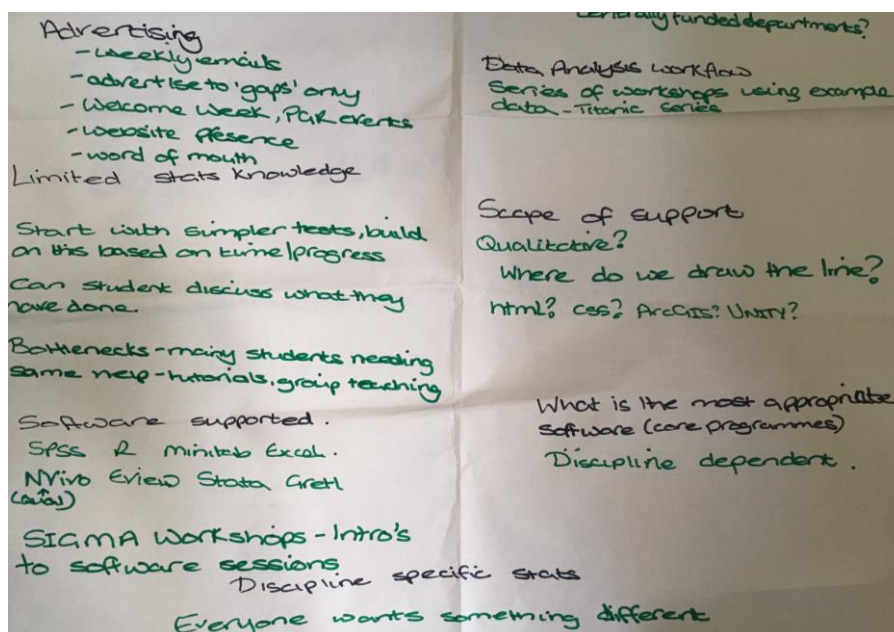 Advertising
- weekly emails
- advertise to 'gaps' only
- Welcome Week, PGR events
- website presence
- word of mouth
Limited stats knowledge
Start with simpler tests, build
on this based on time/progress
Can student discuss what they
have done.
Bottlenecks - many students needing
same help - tutorials, group teaching
Software supported.
SPSS R minitab Excel.
NVivo Eview Stata Gretl
SIGMA Workshops - Intro's
to software sessions
Discipline specific stats
Everyone wants something different
funded departments?
Data Analysis workflow
Series of workshops using example
data - Titanic series
Scope of support
Qualitative?
Where do we draw the line?
html? css? ArcGIS? UNITY?
What is the most appropriate
software (core programmes)
Discipline dependent.